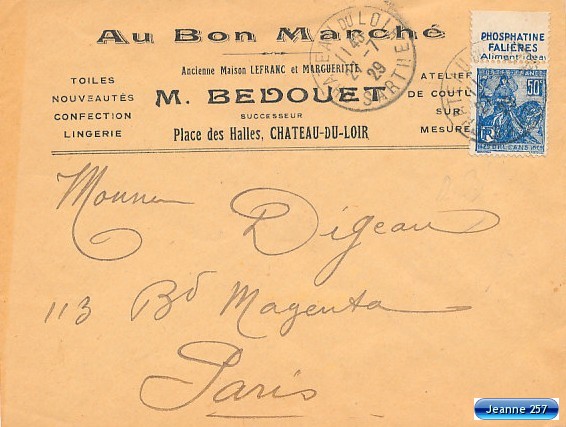 Au Bon Marché
Ancienne Maison LEFRANC et MARGUERITTE
M. BEDOUET
SUCCESSEUR
Place des Halles, CHATEAU-DU-LOIR
TOILES
NOUVEAUTÉS
CONFECTION
LINGERIE
ATELIER
DE COUTU
SUR
MESURE
DU LOIR
29
SARTHE
PHOSPHATINE
FALIÈRES
50c
Digeau
113 Bd Magenta
Paris
Jeanne 257